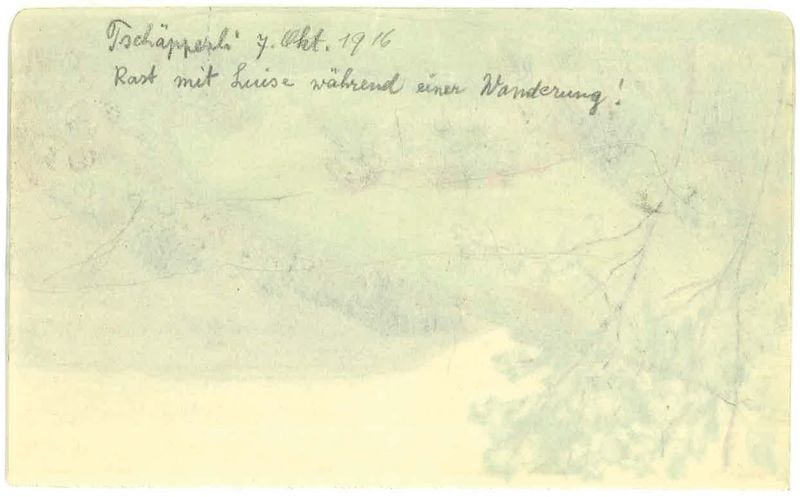 Tschäpperli 7. Okt. 1916
Rast mit Luise während einer Wanderung!